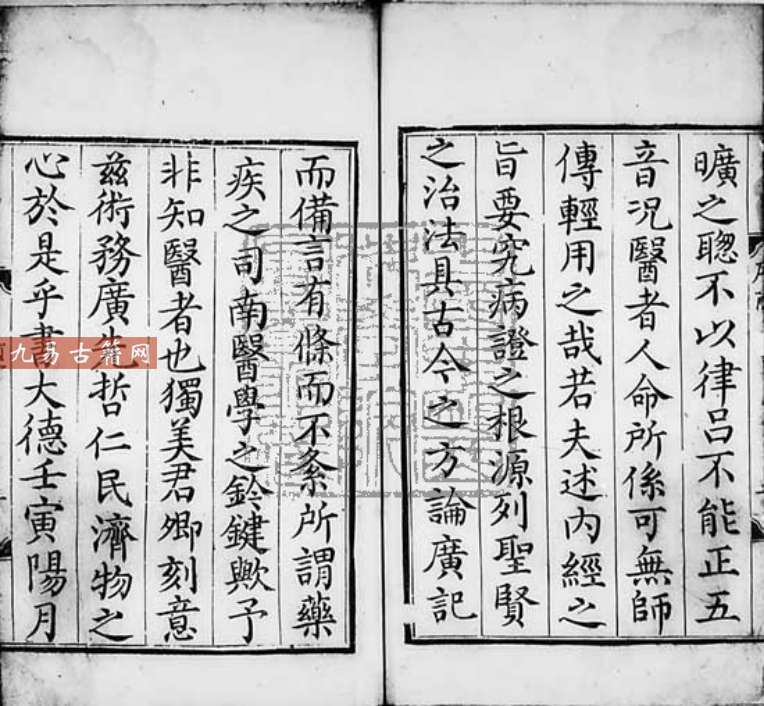 曠之聰不以律呂不能正五
音况醫者人命所係可無師
傳輕用之哉若夫述內經之
旨要究病證之根源列聖賢
之治法具古今之方論廣記
而備言有條而不紊所謂藥
疾之司南醫學之鈐鍵歟予
非知醫者也獨美君卿刻意
茲術務廣先哲仁民濟物之
心於是乎書大德壬寅陽月
九易古籍网